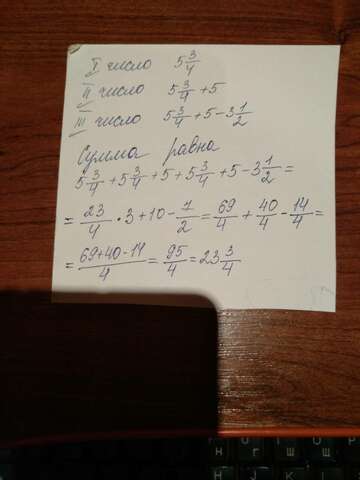 I число 5 3/4
II число 5 3/4 + 5
III число 5 3/4 + 5 - 3 1/2
Сумма равна
5 3/4 + 5 3/4 + 5 + 5 3/4 + 5 - 3 1/2 =
= 23/4 • 3 + 10 - 7/2 = 69/4 + 40/4 - 14/4 =
= (69+40-14)/4 = 95/4 = 23 3/4